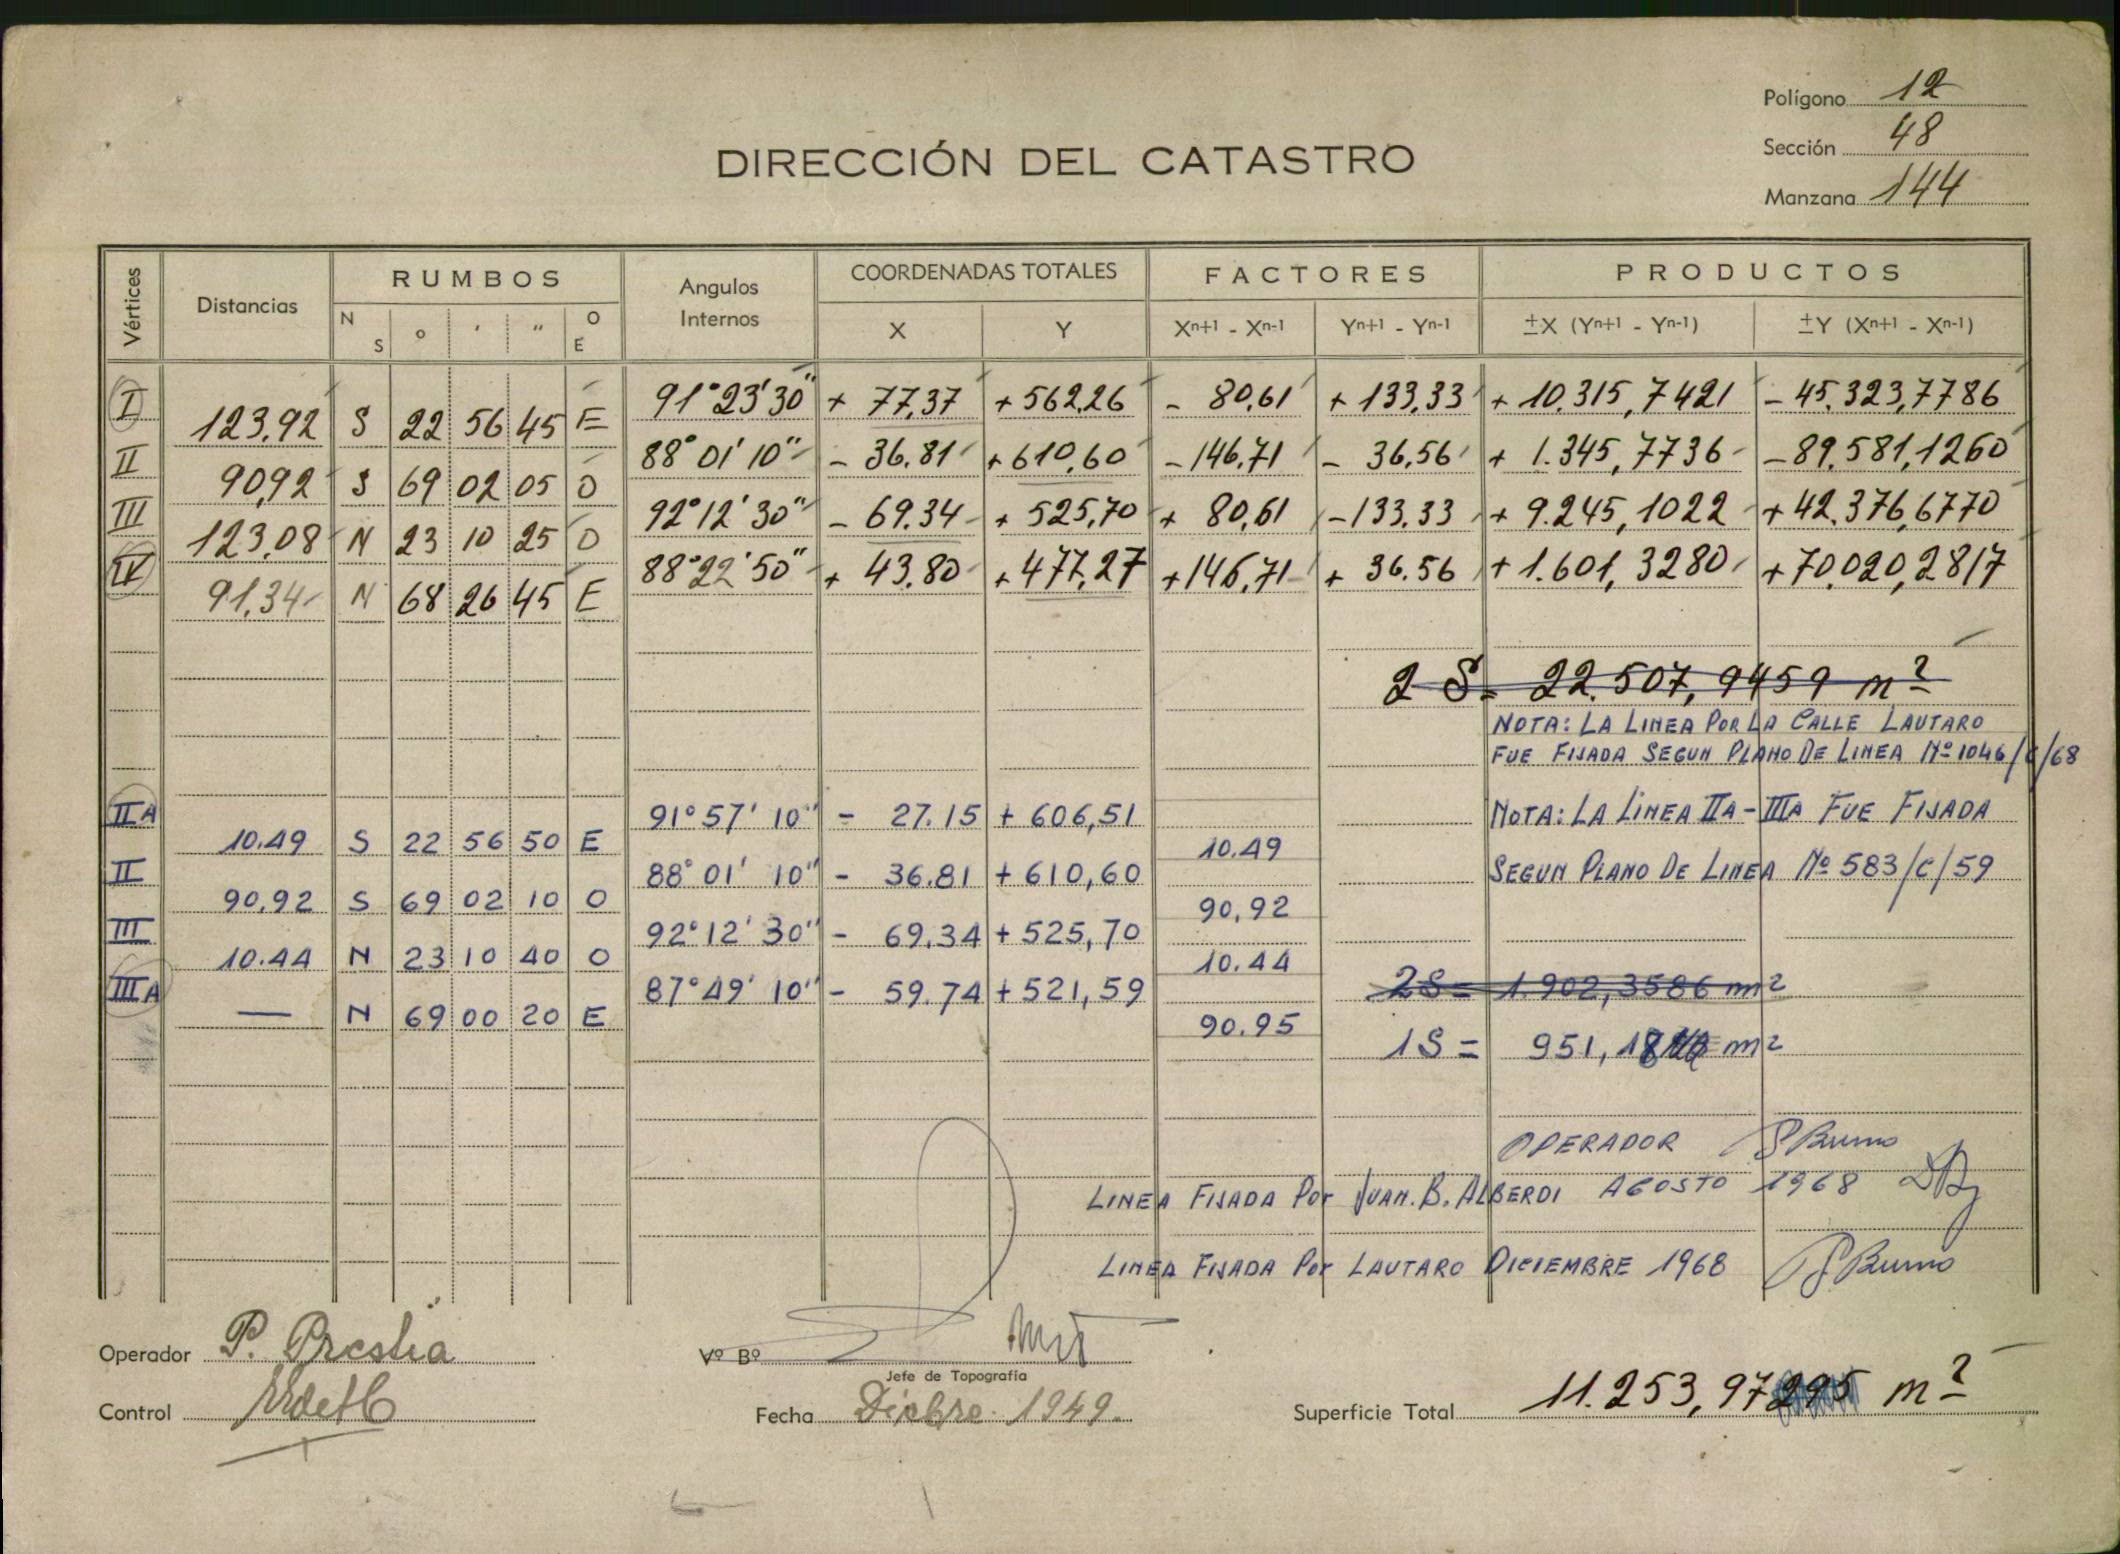 Polígono 12
Sección 48
Manzana 144
DIRECCIÓN DEL CATASTRO
Vértices Distancias RUMBOS Angulos Internos COORDENADAS TOTALES FACTORES PRODUCTOS
N S o ' " O E X Y Xn+1 - Xn-1 Yn+1 - Yn-1 ±X (Yn+1 - Yn-1) ±Y (Xn+1 - Xn-1)
I 91°23'30" + 77,37 + 562,26 - 80,61 + 133,33 + 10.315,7421 - 45.323,7786
123,92 S 22 56 45 E
II 88°01'10" - 36.81 + 610,60 - 146,71 - 36,56 + 1.345,7736 - 89.581,1260
90,92 S 69 02 05 O
III 92°12'30" - 69,34 + 525,70 + 80,61 - 133,33 + 9.245,1022 + 42.376,6770
123,08 N 23 10 25 O
IV 88°22'50" + 43.80 + 477,27 + 146,71 + 36.56 + 1.601,3280 + 70.020,2817
91,34 N 68 26 45 E
2 S = 22.507,9459 m²
NOTA: LA LINEA POR LA CALLE LAUTARO
FUE FIJADA SEGUN PLANO DE LINEA Nº 1046/C/68
IIA 91°57' 10" - 27.15 + 606,51 NOTA: LA LINEA IIA-IIIA FUE FIJADA
10.49 S 22 56 50 E 10.49
II 88°01' 10" - 36.81 + 610,60 SEGUN PLANO DE LINEA Nº 583/C/59
90,92 S 69 02 10 O 90,92
III 92°12' 30" - 69,34 + 525,70
10.44 N 23 10 40 O 10.44
IIIA 87°49' 10" - 59.74 + 521,59 2S = 1.902,3586 m²
— N 69 00 20 E 90.95
1S = 951,18 m²
OPERADOR P Bruno
LINEA FIJADA POR JUAN. B. ALBERDI AGOSTO 1968
LINEA FIJADA POR LAUTARO DICIEMBRE 1968 P Bruno
Operador P. Prestia
Vº Bº
Jefe de Topografía
Control
Fecha Dicbre. 1949.
Superficie Total 11.253,97295 m²